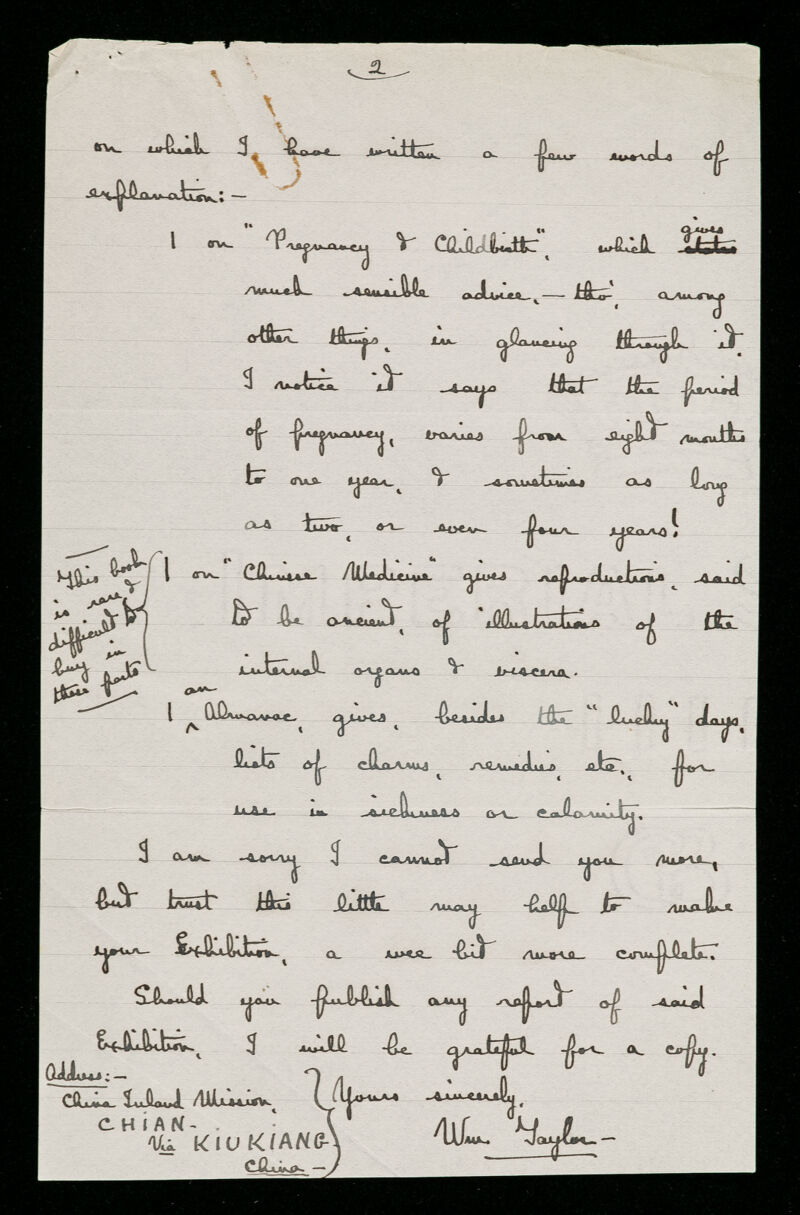 2
on which I have written a few words of
explanation:—
1 on "Pregnancy & Childbirth", which gives states
much sensible advice,— tho', among
other things, in glancing through it,
I notice it says that the period
of pregnancy, varies from eight months
to one year, & sometimes as long
as two, or even four years!
1 on "Chinese Medicine" gives reproductions, said
to be ancient, of illustrations of the
internal organs & viscera.
This book
is rare &
difficult to
buy in
these parts
1 an Almanac, gives, besides the "lucky" days,
lists of charms, remedies, etc., for
use in sickness or calamity.
I am sorry I cannot send you more,
but trust this little may help to make
your Exhibition, a wee bit more complete.
Should you publish any report of said
Exhibition, I will be grateful for a copy.
Yours sincerely,
Wm. Taylor—
Address:—
China Inland Mission,
CHIAN-
Via KIUKIANG
China—